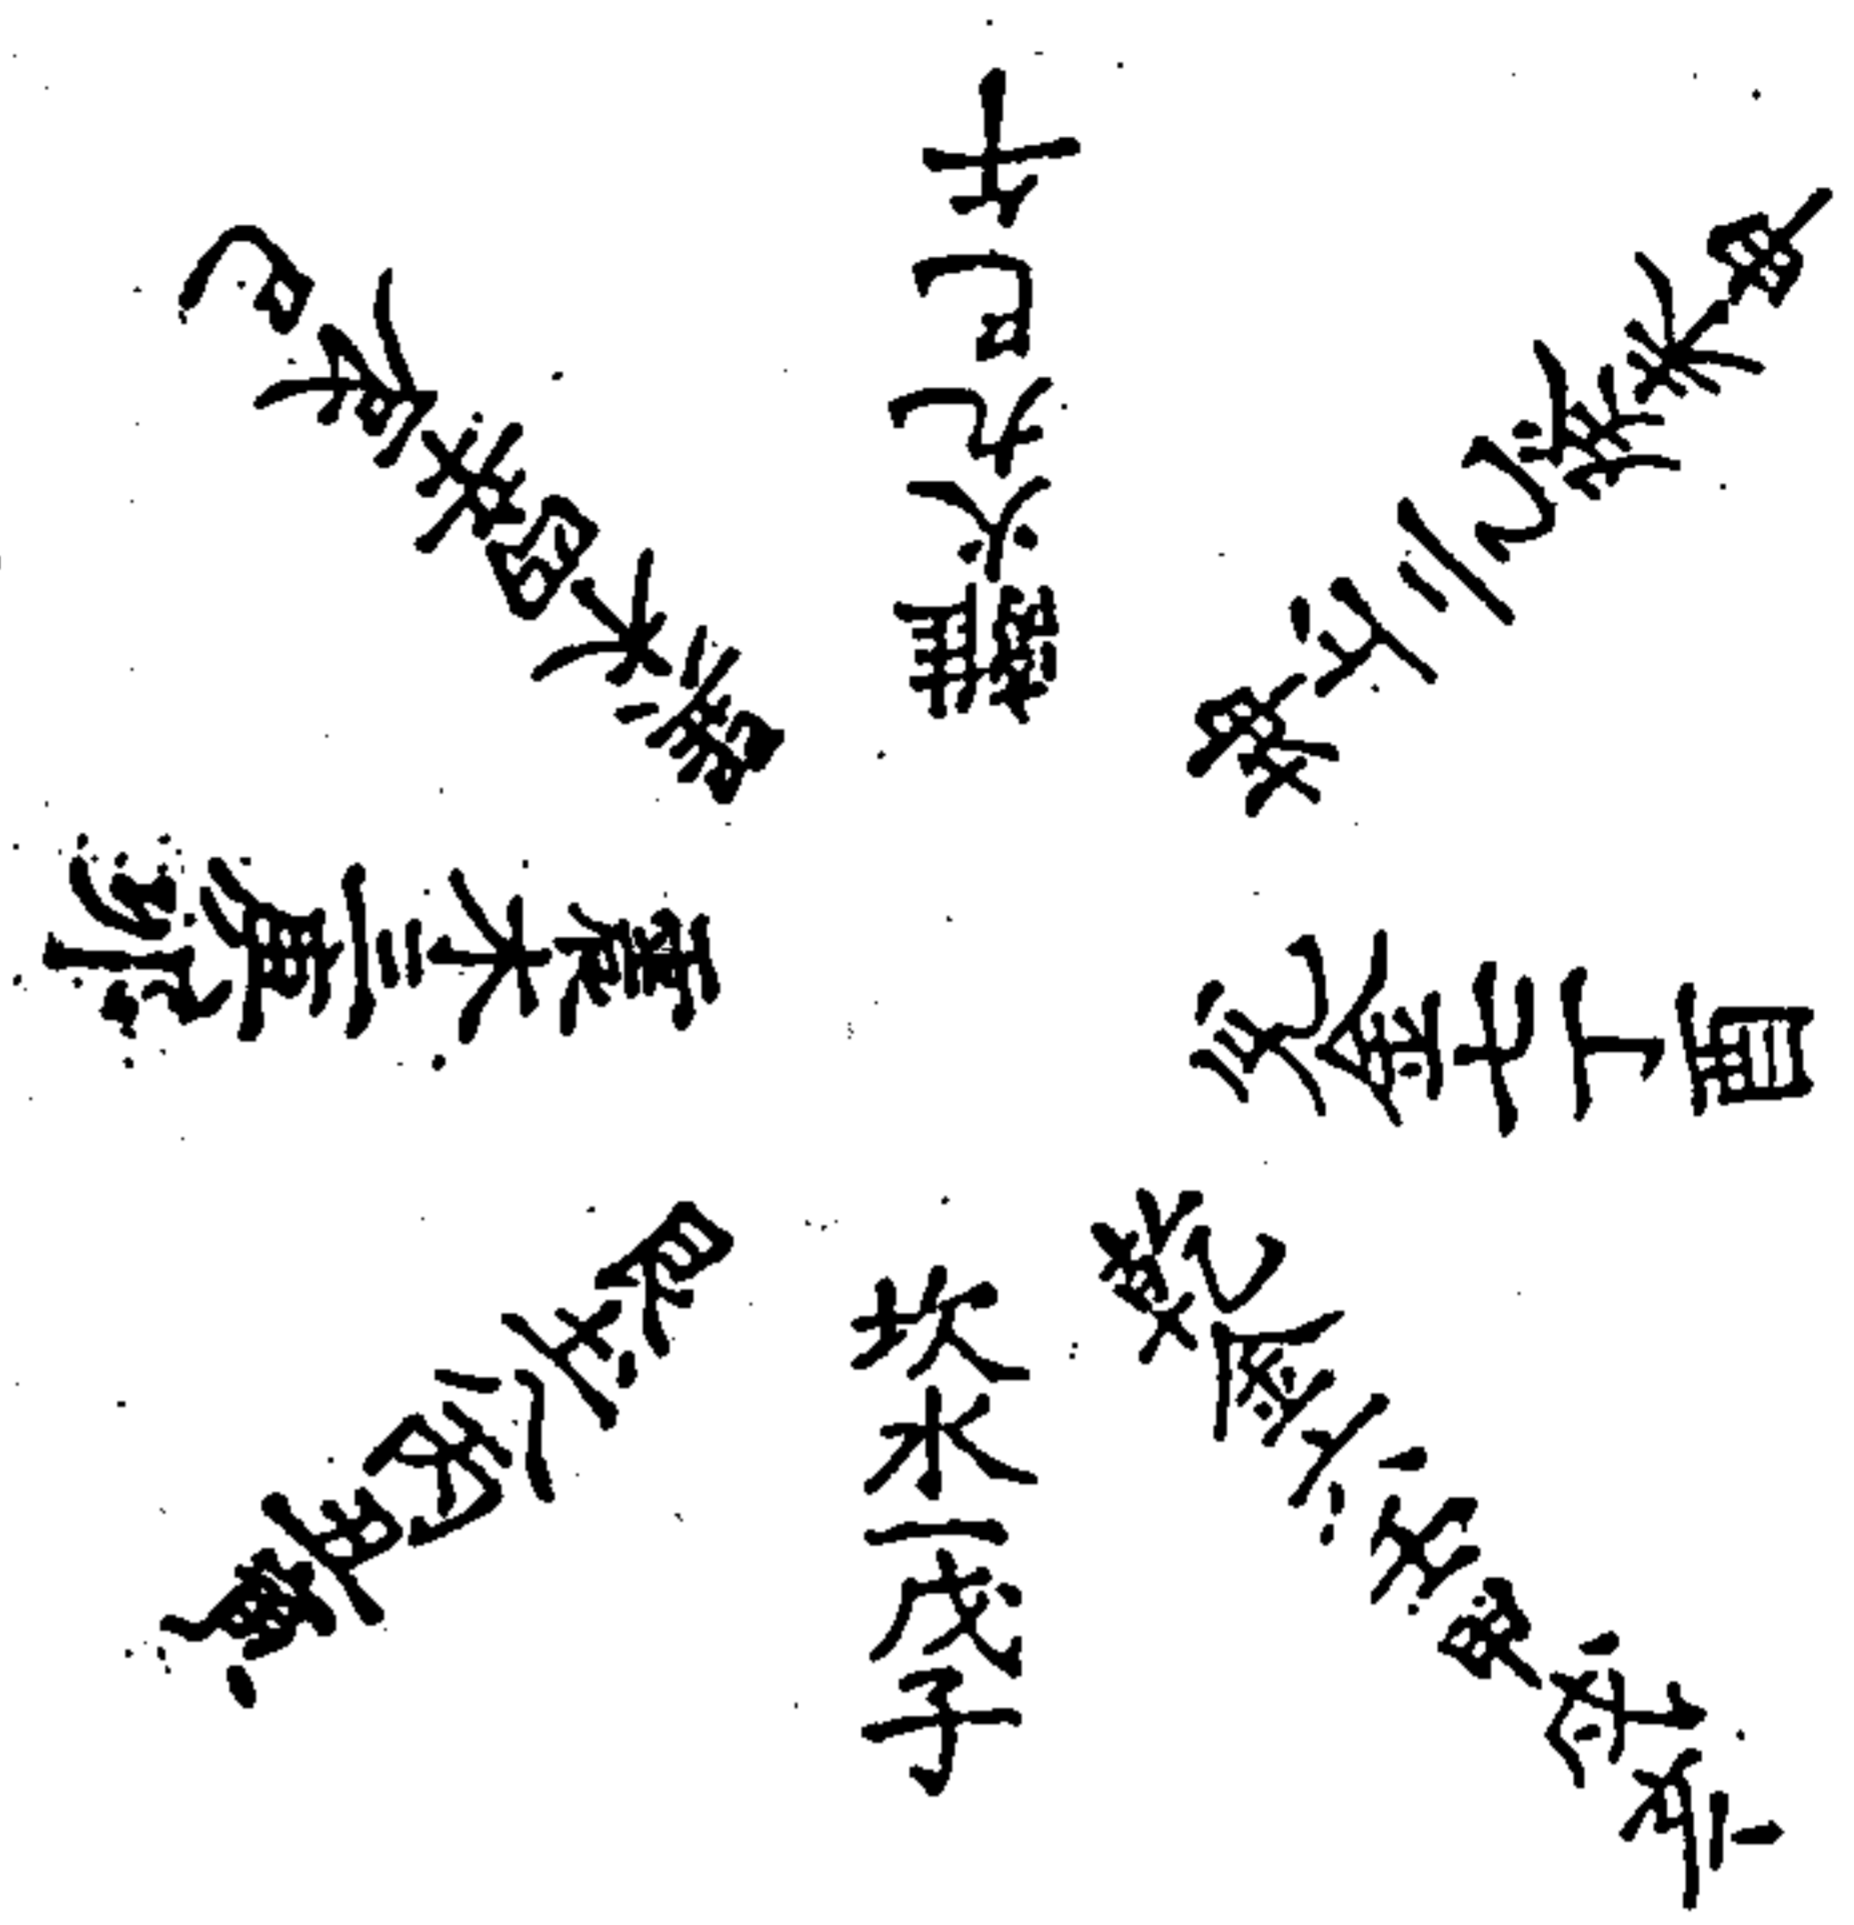 離火九己午
坤土二乙癸未申
兌金七丁酉
乾金六壬甲戌亥
坎水一戊子
艮土八丙丑寅
震木三庚卯
巽木四辛辰巳